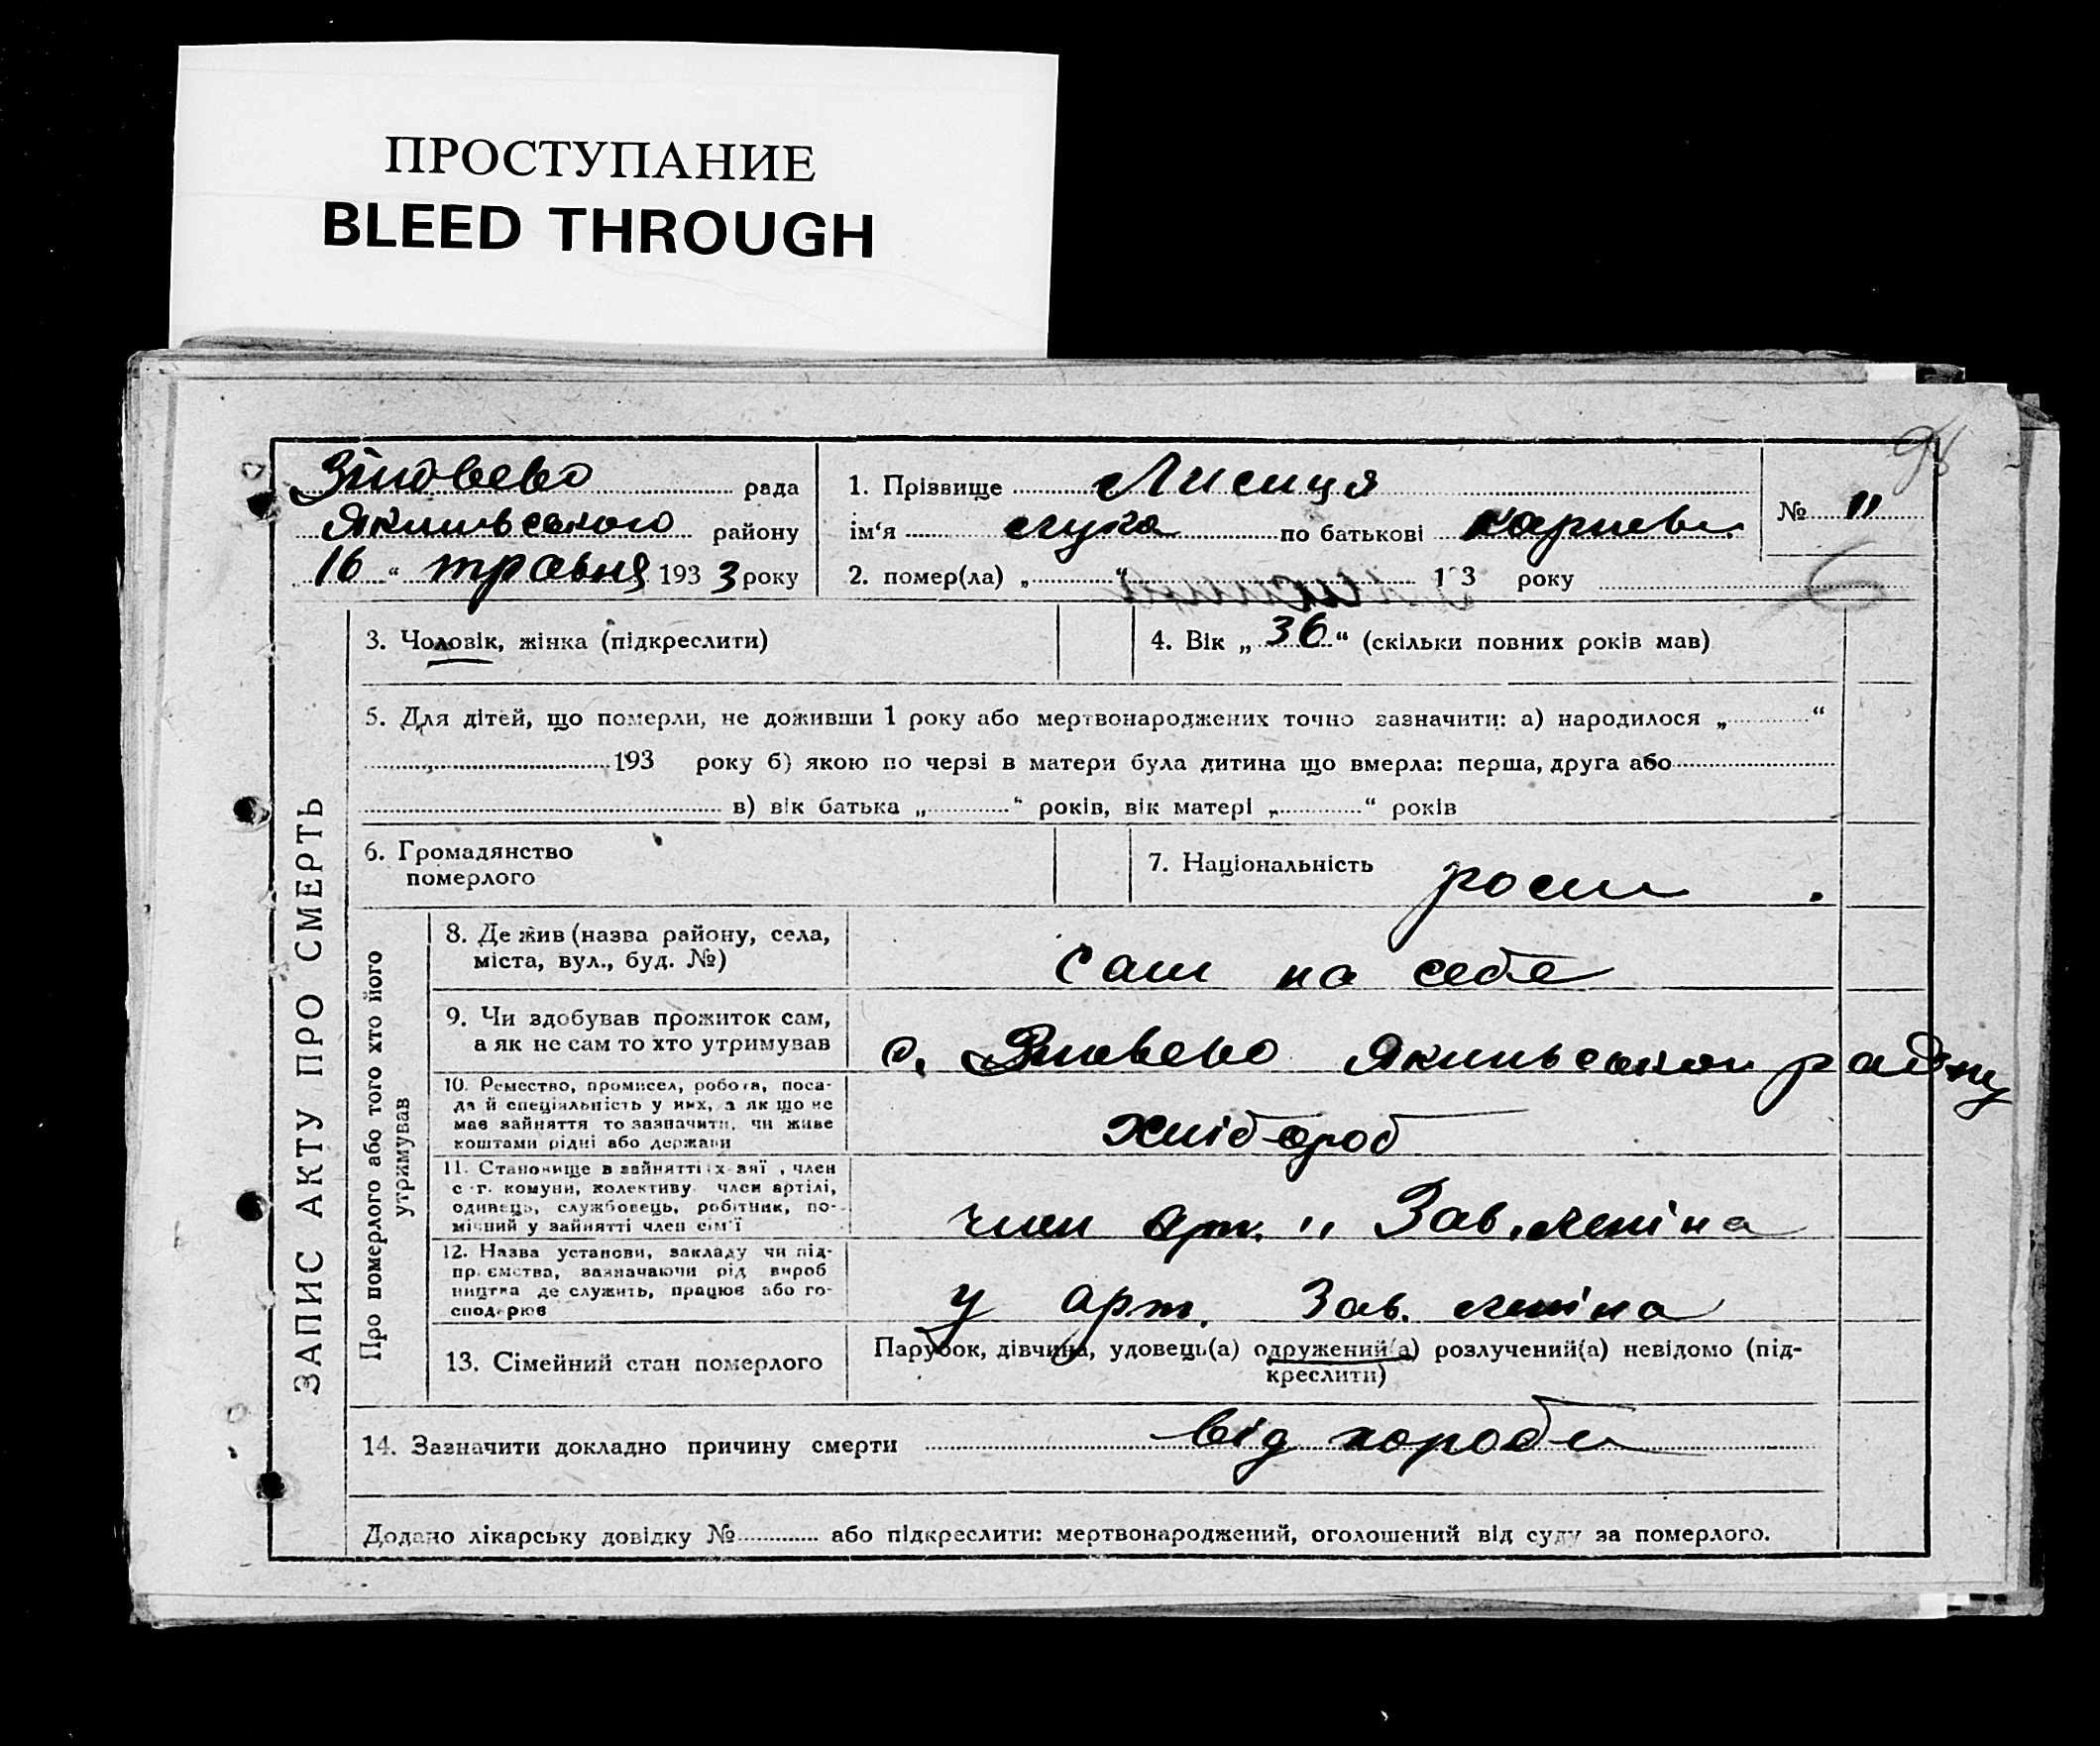 ПРОСТУПАНИЕ
BLEED THROUGH
98
Зіновево рада
Якимівського району
16 “ травня 193 3 року
1. Прізвище Лисиця
ім‘я Лука по батькові
№ 11
2. помер(ла) „ “ 1 3 року
ЗАПИС АКТУ ПРО СМЕРТЬ
3. Чоловік, жінка (підкреслити)
4. Вік „ 36 “ (скільки повних років мав)
5. Для дітей, що померли, не доживши 1 року або мертвонароджених точно зазначити: а) народилося „ “
193 року б) якою по черзі в матери була дитина що вмерла: перша, друга або
в) вік батька „ “ років, вік матері „ “ років
6. Громадянство
померлого
7. Національність росии
Про померлого або того хто його
утримував
8. Де жив (назва району, села,
міста, вул., буд. №)
Сам на себе
9. Чи здобував прожиток сам,
а як не сам то хто утримував
с. Зіновево району
10. Ремество, промисел, робота, поса-
да й спеціяльність у них, а як що не
має зайняття то зазначити, чи живе
коштами рідні або держави
хлібороб
11. Становище в зайнятті , член
с.-г. комуни, колективу член артілі,
одинець, службовець, робітник, по-
мічний у зайнятті член сім‘ї
член арт. „ Зав. Леніна
12. Назва установи, закладу чи під-
пр ємства, зазначаючи рід вироб
ництва де служить, працює або го-
сподарює
у арт. Зав. Леніна
13. Сімейний стан померлого
Парубок, дівчина, удовець(а) одружений(а) розлучений(а) невідомо (під-
креслити)
14. Зазначити докладно причину смерти від хороби
Додано лікарську довідку № або підкреслити: мертвонароджений, оголошений від суду за померлого.